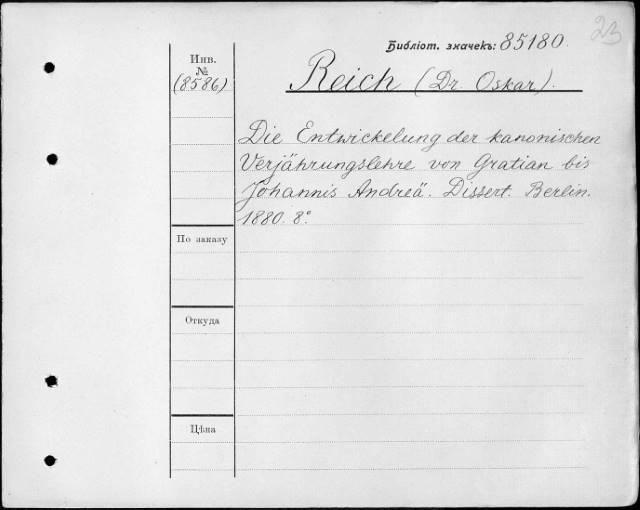 23
Библіот. значекъ: 85180.
Инв.
№
(8586)
Reich (Dr. Oskar).
Die Entwickelung der kanonischen
Verjährungslehre von Gratian bis
Johannis Andreä. Dissert. Berlin.
1880. 8°
По заказу
Откуда
Цѣна